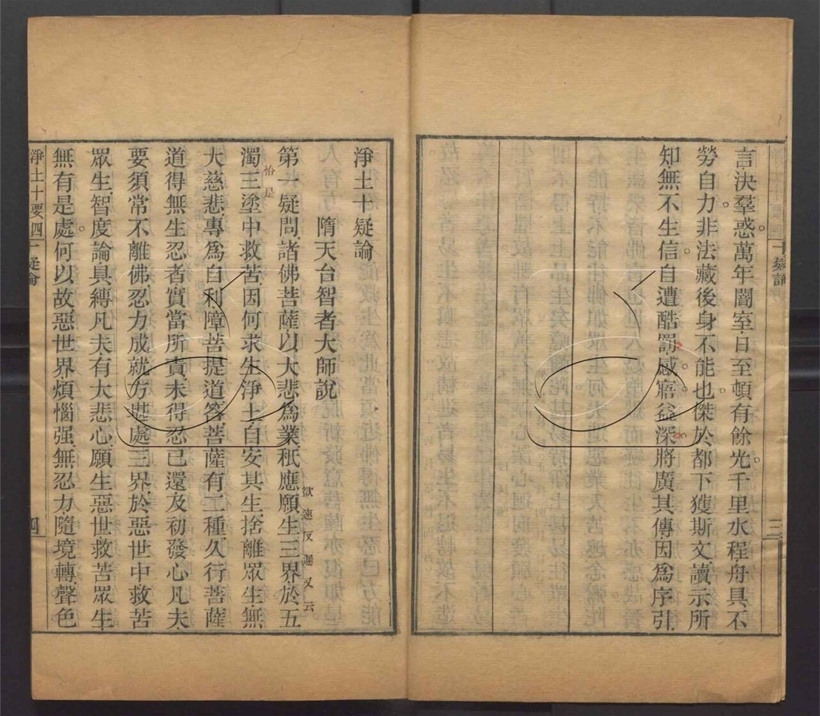 言決羣惑萬年闇室日至頓有餘光千里水程舟具不
勞自力非法藏後身不能也傑於都下獲斯文讀示所
知無不生信自遭酷罰感寤益深將廣其傳因爲序引
三
淨土十疑論
隋天台智者大師說
第一疑問諸佛菩薩以大悲爲業秖應願生三界於五
濁三塗中救苦因何求生淨土自安其生捨離眾生無
恰是
大慈悲專爲自利障菩提道答菩薩有二種久行菩薩
道得無生忍者實當所責未得忍已還及初發心凡夫
要須常不離佛忍力成就方堪處三界於惡世中救苦
眾生智度論具縛凡夫有大悲心願生惡世救苦眾生
無有是處何以故惡世界煩惱强無忍力隨境轉聲色
淨土十要四 十疑論
四